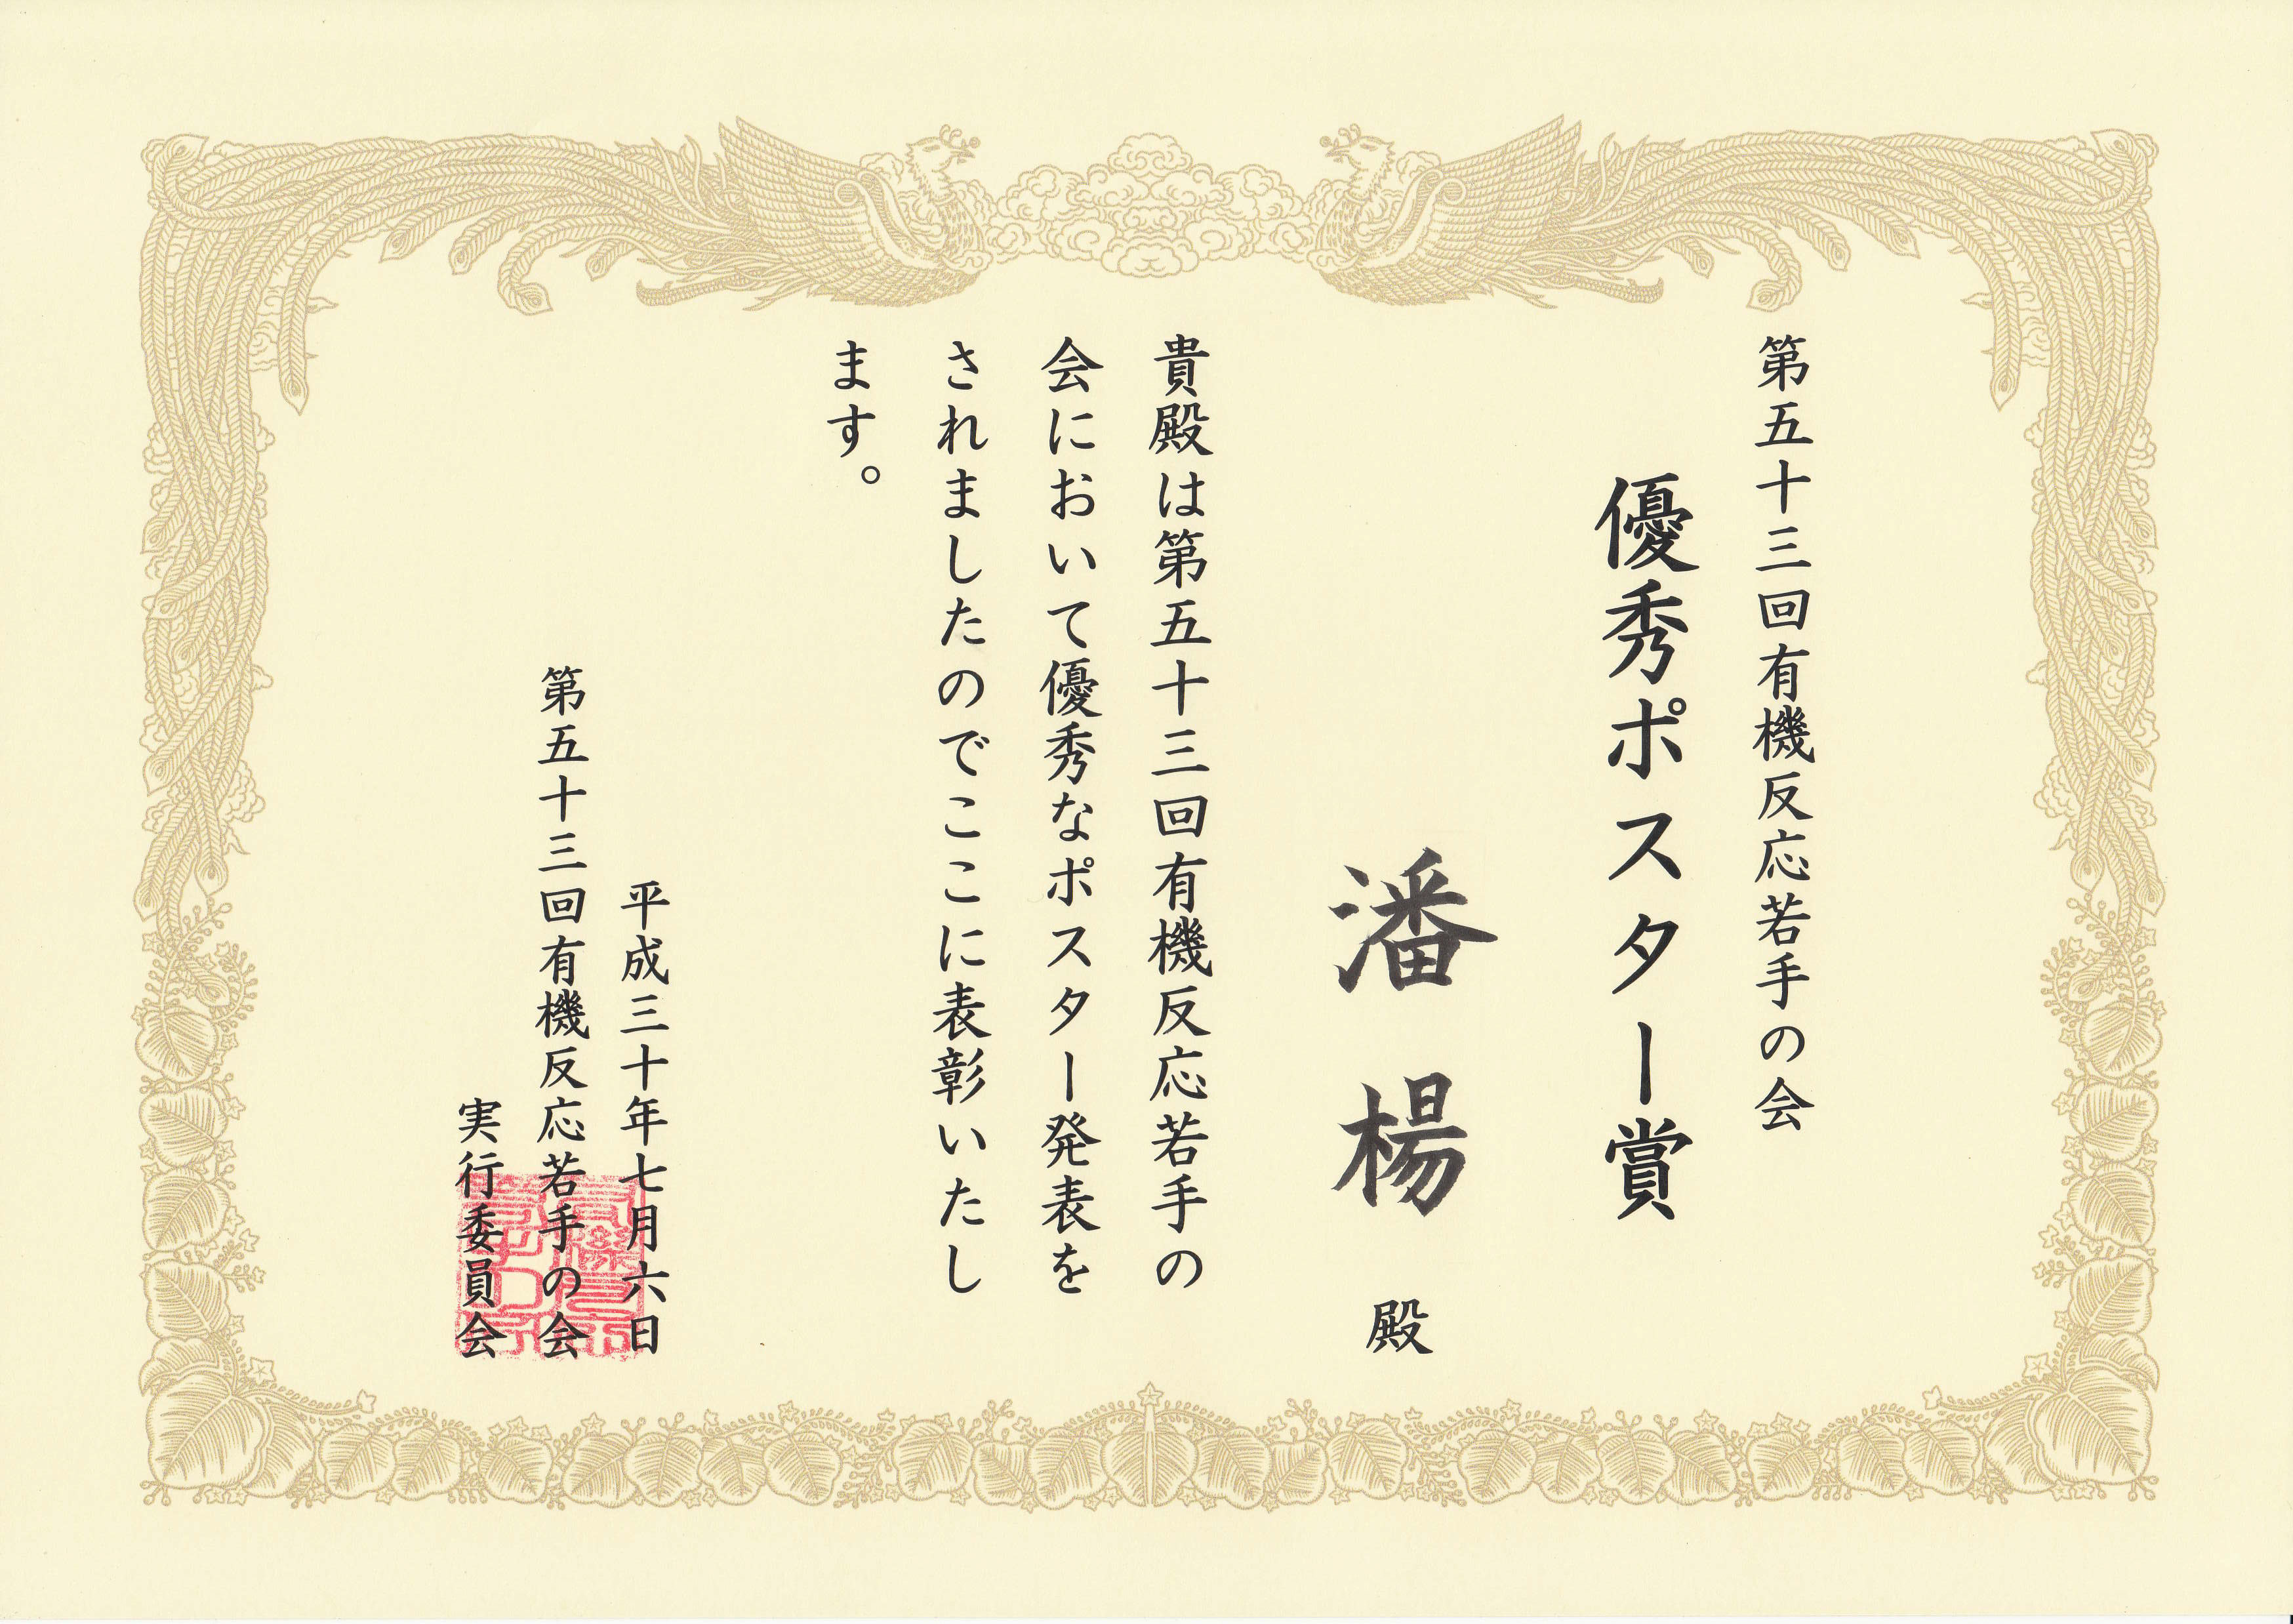 第五十三回有機反応若手の会
優秀ポスター賞
潘楊 殿
貴殿は第五十三回有機反応若手の
会において優秀なポスター発表を
されましたのでここに表彰いたし
ます。
平成三十年七月六日
第五十三回有機反応若手の会
実行委員会